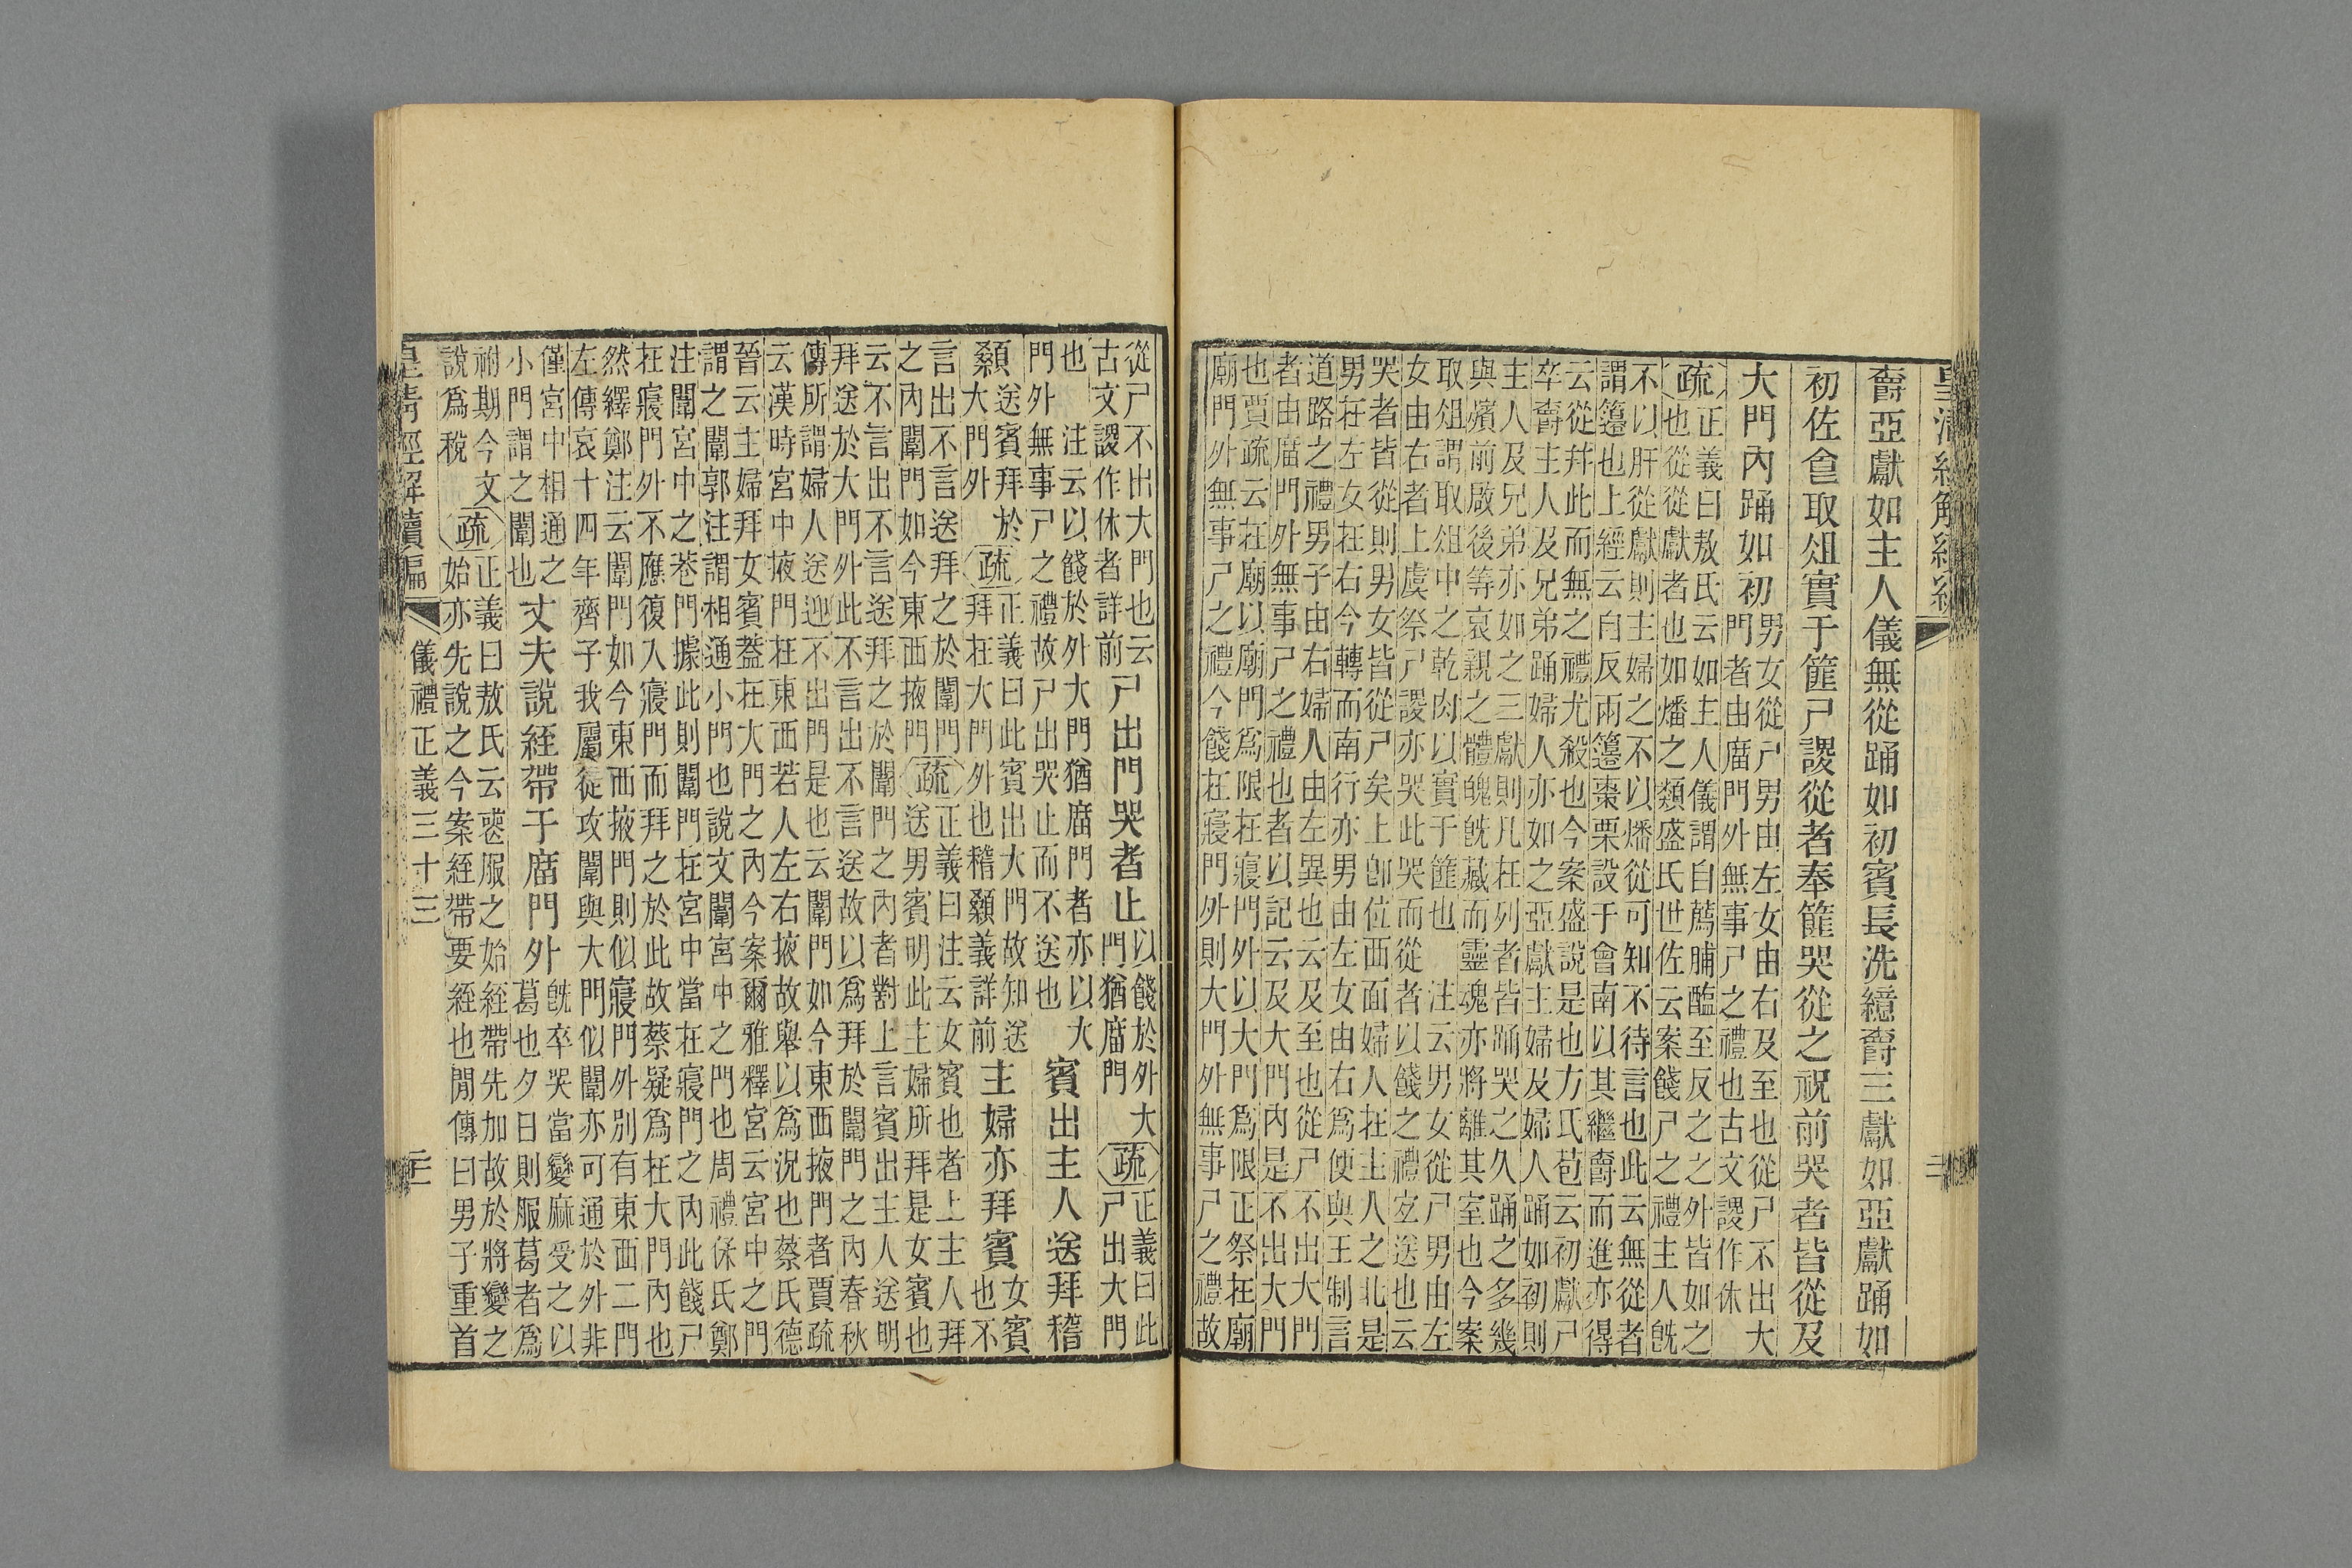 皇清經解續編 二
爵亞獻如主人儀無從踊如初賓長洗繶爵三獻如亞獻踊如
初佐食取俎實于篚尸謖從者奉篚哭從之祝前哭者皆從及
大門內踊如初
男女從尸男由左女由右及至也從尸不出大
門者由庿門外無事尸之禮也古文謖作休
疏
正義曰敖氏云如主人儀謂自薦脯醢至反之之外皆如之
也從從獻者也如燔之類盛氏世佐云案餞尸之禮主人旣
不以肝從獻則主婦之不以燔從可知不待言也此云無從者
謂籩也上經云自反兩籩棗栗設于會南以其繼爵而進亦得
云從幷此而無之禮尤殺也今案盛說是也方氏苞云初獻尸
卒爵主人及兄弟踊婦人亦如之亞獻主婦及婦人踊如初則
主人及兄弟亦如之三獻則凡在列者皆踊哭之久踊之多幾
與殯前啟後等哀親之體魄旣藏而靈魂亦將離其室也今案
取俎謂取俎中之乾肉以實于篚也 注云男女從尸男由左
女由右者上虞祭尸謖亦哭此哭而從者以餞之禮宜送也云
哭者皆從則男女皆從尸矣上卽位西面婦人在主人之北是
男在左女在右今轉而南行亦男由左女由右爲便與王制言
道路之禮男子由右婦人由左異也云及至也從尸不出大門
者由庿門外無事尸之禮也者以記云及大門內是不出大門
也賈疏云在廟以廟門爲限在寢門外以大門爲限正祭在廟
廟門外無事尸之禮今餞在寢門外則大門外無事尸之禮故
從尸不出大門也云
古文謖作休者詳前
尸出門哭者止
以餞於外大
門猶庿門
疏
正義曰此
尸出大門
也 注云以餞於外大門猶庿門者亦以大
門外無事尸之禮故尸出哭止而不送也
賓出主人送拜稽
顙
送賓拜於
大門外
疏
正義曰此賓出大門故知送
拜在大門外也稽顙義詳前
主婦亦拜賓
女賓
也不
言出不言送拜之於闈門
之內闈門如今東西掖門
疏
正義曰注云女賓也者上主人拜
送男賓明此主婦所拜是女賓也
云不言出不言送拜之於闈門之內者對上言賓出主人送明
拜送於大門外此不言出不言送故以爲拜於闈門之內春秋
傳所謂婦人送迎不出門是也云闈門如今東西掖門者賈疏
云漢時宮中掖門在東西若人左右掖故舉以爲況也蔡氏德
晉云主婦拜女賓蓋在大門之內今案爾雅釋宮云宮中之門
謂之闈郭注謂相通小門也說文闈宮中之門也周禮保氏鄭
注闈宮中之巷門據此則闈門在宮中當在寢門之內此餞尸
在寢門外不應復入寢門而拜之於此故蔡疑爲在大門內也
然繹鄭注云闈門如今東西掖門則似寢門外別有東西二門
左傳哀十四年齊子我屬徒攻闈與大門似闈亦可通於外非
僅宮中相通之
小門謂之闈也
丈夫說絰帶于庿門外
旣卒哭當變麻受之以
葛也夕日則服葛者爲
祔期今文
說爲稅
疏
正義曰敖氏云喪服之始絰帶先加故於將變之
始亦先說之今案絰帶要絰也閒傳曰男子重首
皇清經解續編 儀禮正義三十三 三